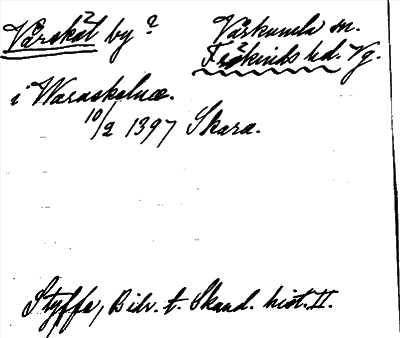 Vårsköt by?
Vårkumla sn.
Frökinds hd. Vg.
i Waruskelnæ.
10/2 1397 Skara.
Styffe, Bidr. t. Skand. hist. II.